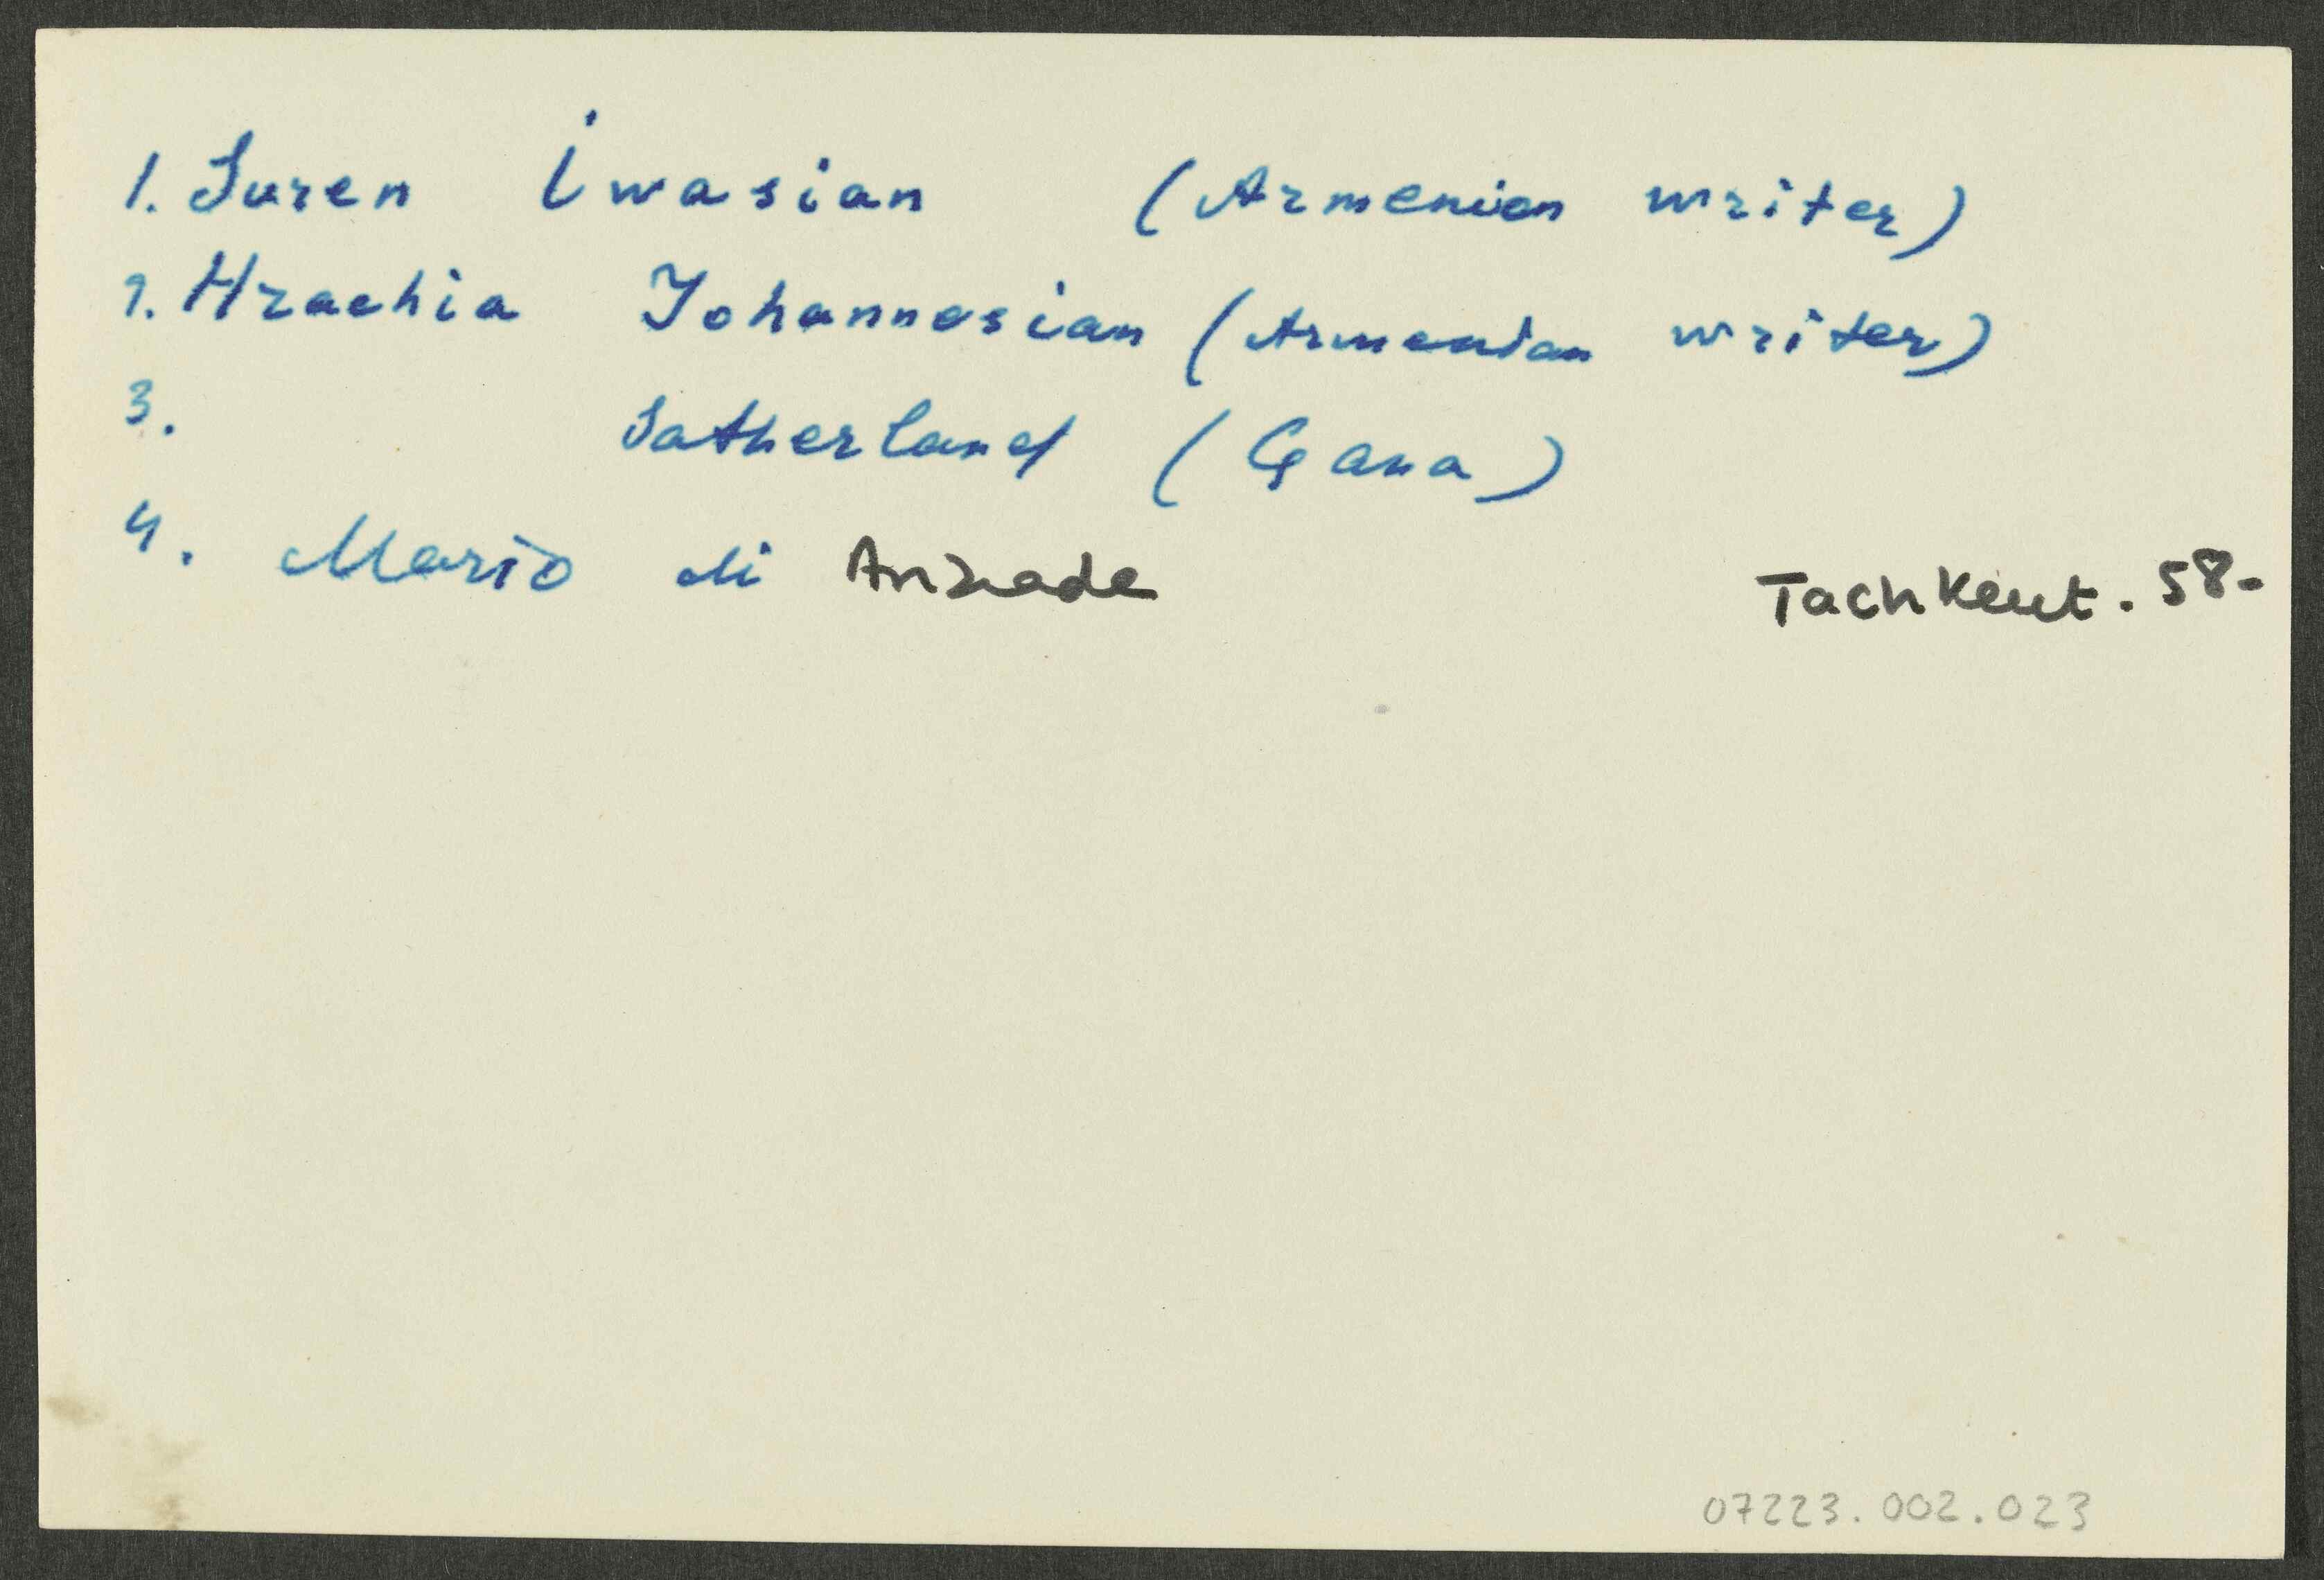 1. Suren Iwasian (Armenian writer)
2. Hrachia Johannosian (Armenian writer)
3. Satherland (Gana)
4. Mario di Andrade Tachkent. 58-
07223.002.023